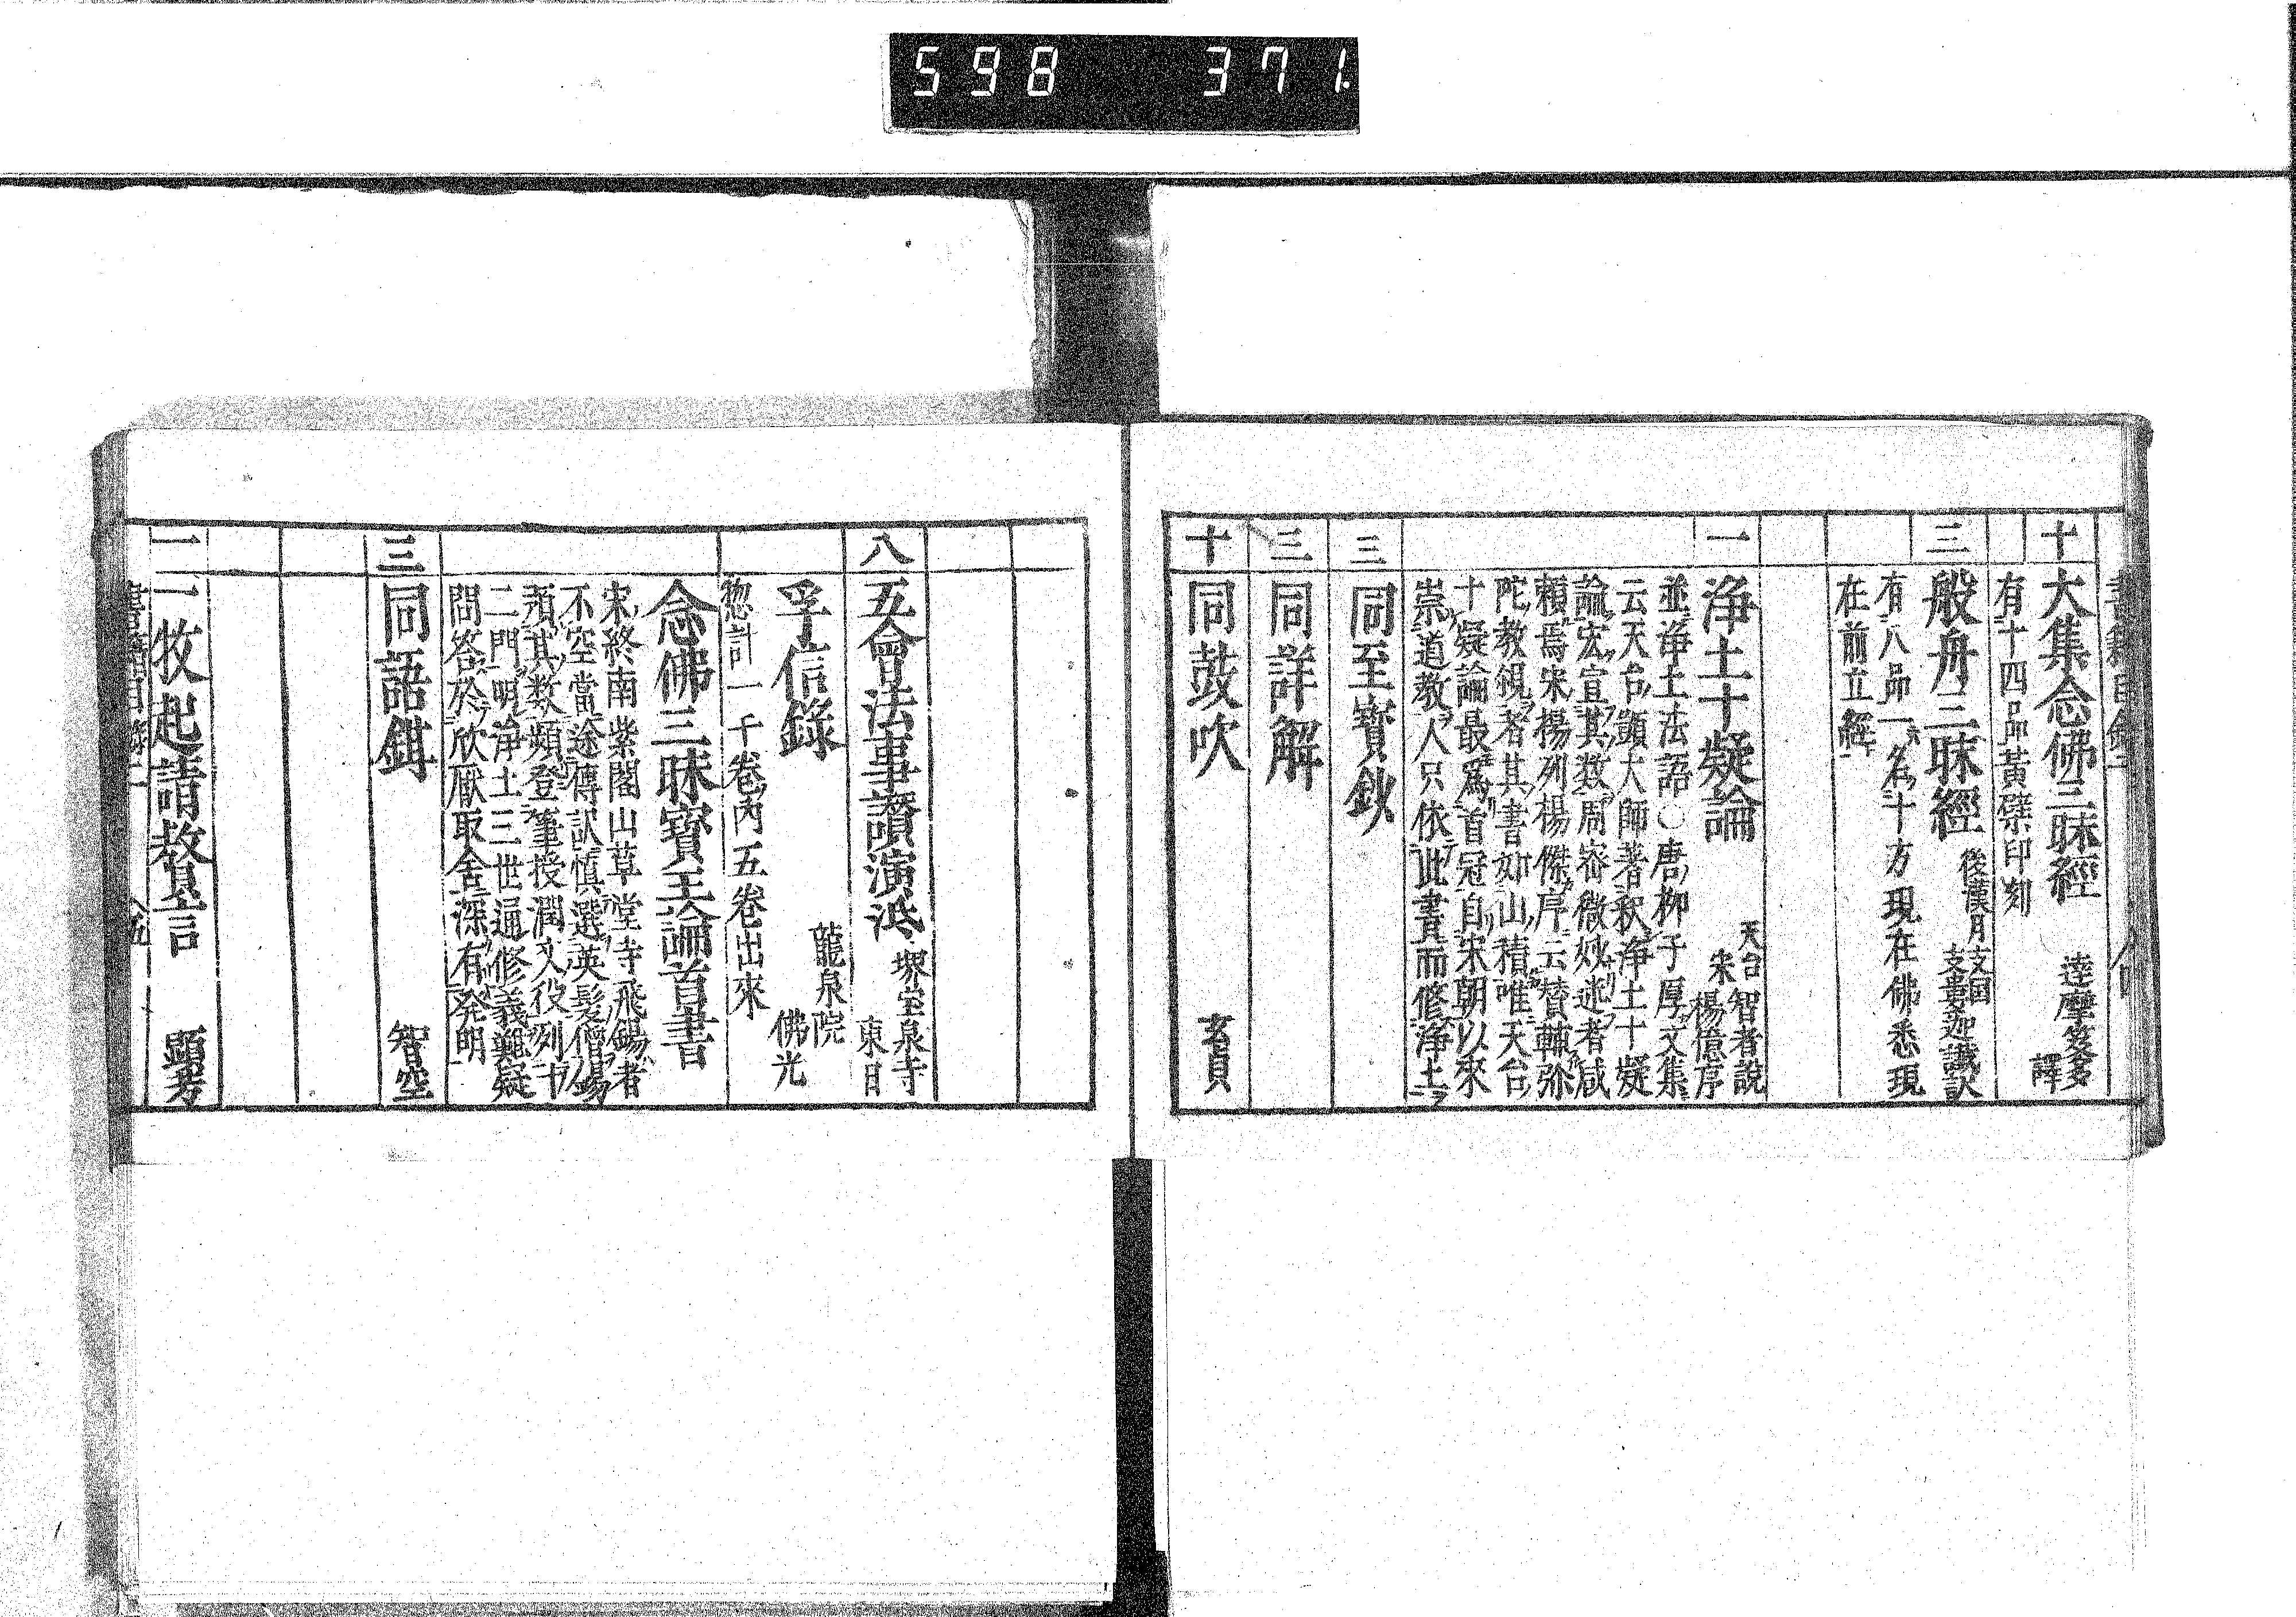 598 371
十 大集念佛三昧經 達摩笈多譯
有十四品黃檗印刻
三 般舟三昧經 後漢月支国支婁迦讖訳
有八品一名十方現在佛悉現
在前立經
一 浄土十疑論 天台智者説 宋楊億序
並浄土法語○唐柳子厚文集
云天台顗大師著釈浄土十疑
論宏宣其数周密微妙迷者咸
頼焉宋楊列楊傑序云賛輔弥
陀教観者其書如山積唯天台
十疑論最為首冠自宋朝以來
崇道教人只依此書而修浄土
三 同至寳鈔
三 同詳解
十 同鼓吹 玄貞
八 五會法事讃演底 堺宝泉寺 東日
孚信錄 龍泉院 佛光
惣計一千卷內五卷出來
念佛三昧寳王論首書
宋終南紫閣山草堂寺飛錫者
不空當途傳訳慎選英髦僧錫
預其数頻登筆授潤文役列十
二門明浄土三世通修義難疑
問答於欣厭取舍深有発明
三 同語鉺 智空
二 一枚起請贅言 顕考
書籍目錄